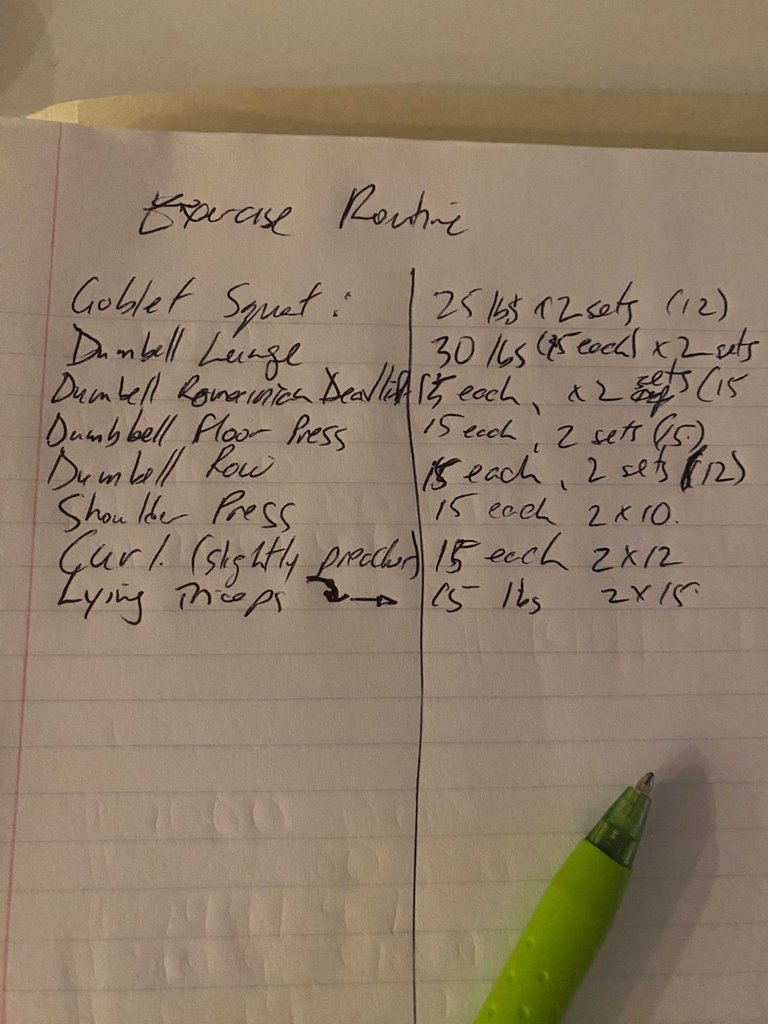 Exercise Routine
Goblet Squat : 25 lbs 2 sets (12)
Dumbell Lunge 30 lbs (15 each) x 2 sets
Dumbell Romaninian Deadlift 15 each, x 2 sets (15
Dumbbell Floor Press 15 each, 2 sets (15)
Dumbell Row 15 each, 2 sets (12)
Shoulder Press 15 each 2x10.
Curl. (slightly preacher) 15 each 2x12
Lying Triceps → 15 lbs 2x15.